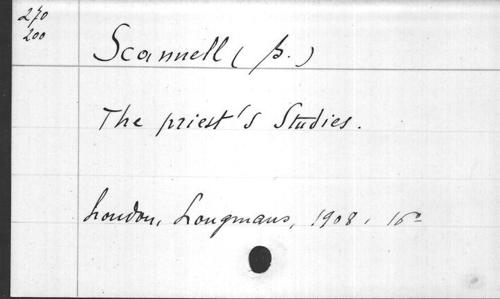 270
200
Scannell ( S. )
The priest's Studies.
London, Longmans, 1908, 16°